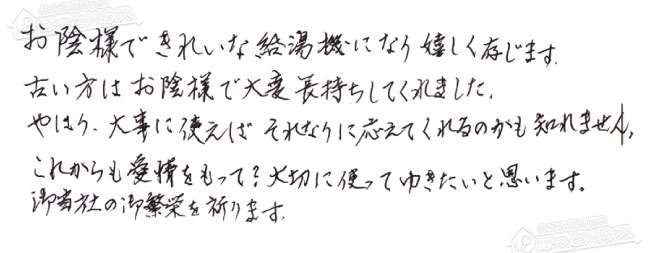 お陰様できれいな給湯機になり嬉しく存じます.
古い方はお陰様で大変長持ちしてくれました.
やはり、大事に使えば それなりに応えてくれるのかも知れません,
これからも愛情をもって？大切に使ってゆきたいと思います。
御当社の御繁栄を祈ります.